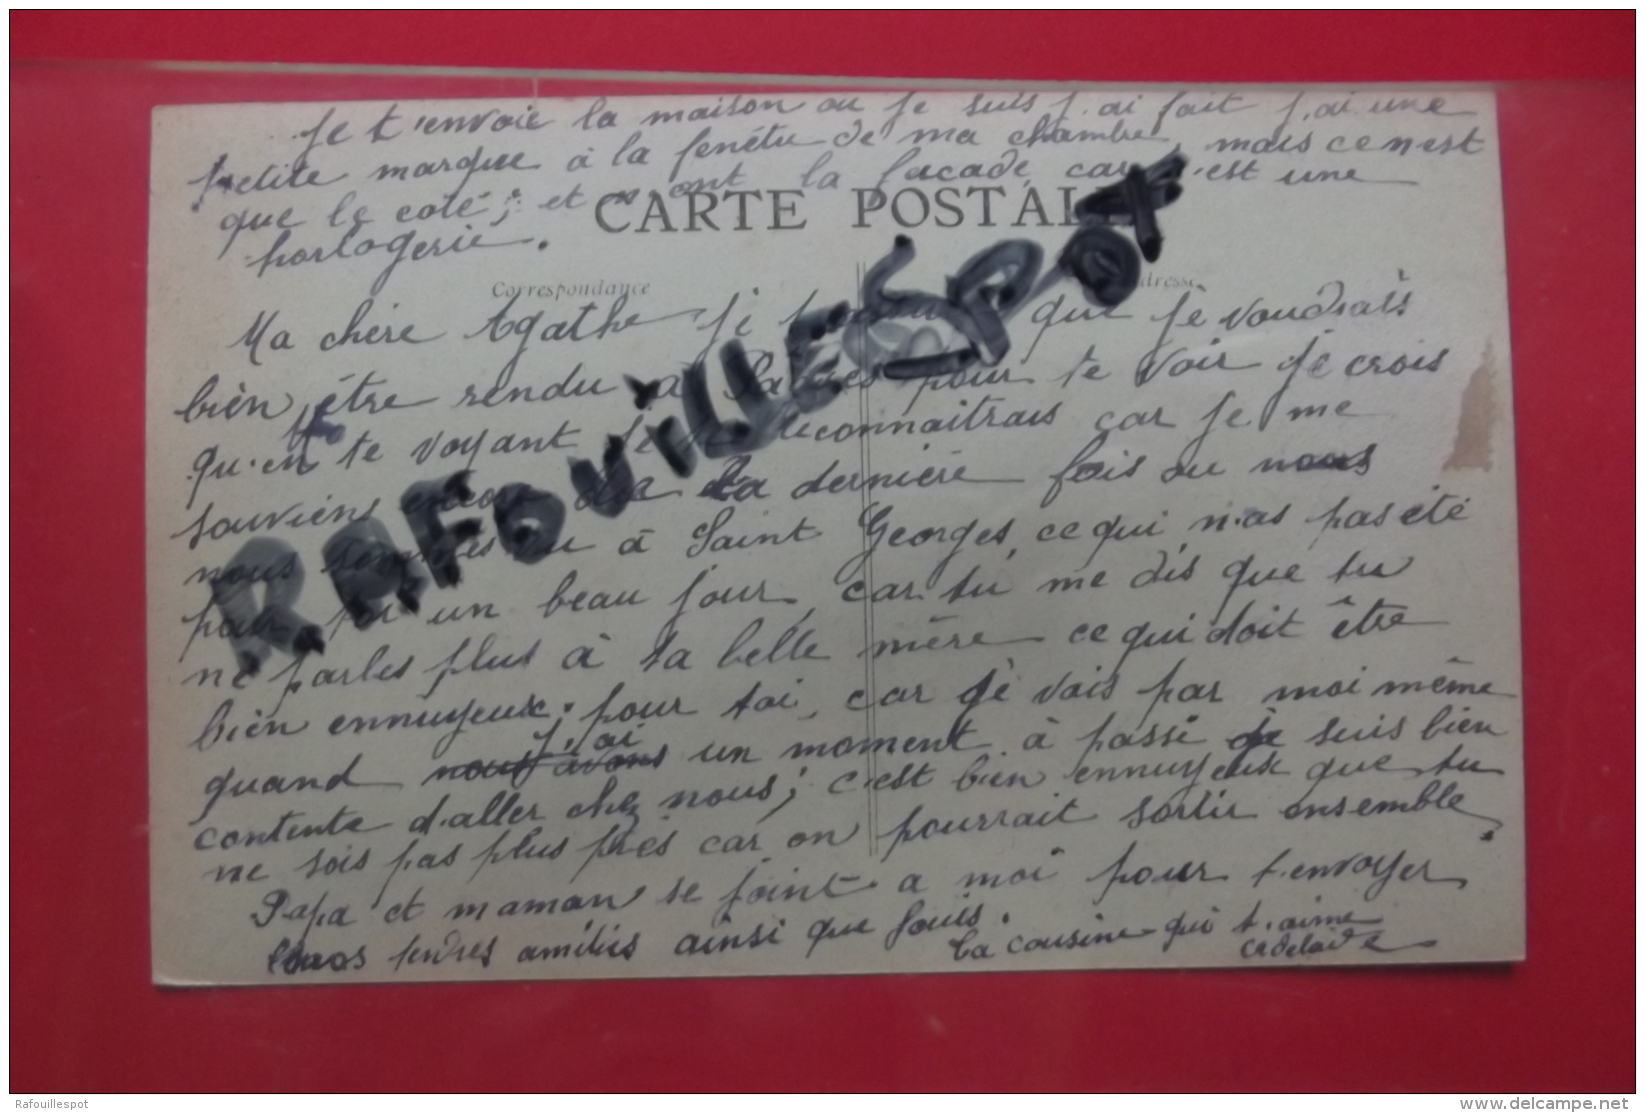 Je t'envoie la maison ou je suis j.ai fait j.ai une
petite marque à la fenêtre de ma chambre, mais ce n est
que le coté; et la façade car c'est une
horlogerie.
CARTE POSTALE
Correspondance
Adresse
Ma chère Agathe je que je voudrais
bien être rendu a Pâques pour te voir je crois
qu.en te voyant je te reconnaitrais car je me
souviens encore de la dernière fois ou nous
nous sommes vu à Saint Georges, ce qui n.as pas été
pour par un beau jour, car tu me dis que tu
ne parles plus à ta belle mère ce qui doit être
bien ennuyeux; pour toi, car je vois par moi même
j'ai
quand nous avons un moment à passé je suis bien
contente d.aller chez nous; c.est bien ennuyeux que tu
ne sois pas plus près car on pourrait sortir ensemble.
Papa et maman se joint a moi pour t.envoyer
nos tendres amitiés ainsi que Louis.
Ta cousine qui t.aime
Adelaïde
RAFOUILLESPOT
Rafouillespot
www.delcampe.net